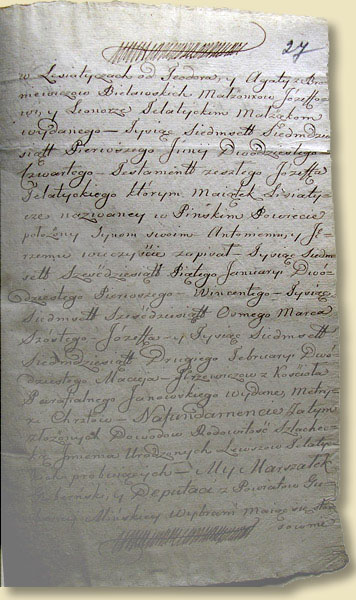 27
w Lesiatyczach od Teodora, y Agaty z
niewiczow Bielawskich Małżonkow Józeffo
wi, y Leonorze Telatyckim Małżąkom
wydanego – Tysiąc Siedmsett Siedmdzie
siątt Pierwszego Junij Dwódziestego
Czwartego – Testamentt zeszłego Józeffa
Telatyckiego którym Maiątek Lesiaty
cze nazwaney w Pińskim Powiecie
położny Synom swoim Antoniemu y Je
rzemu wieczyście zapisał Tysiąc Siedm
sett Sześćdziesiątt Piątego Januarÿ Dwó
dziestego Pierwszego – Wincentego – Tysiąc
Siedmsett Sześćdziesiątt Osmego Marca
Szóstego – Józeffa – y Tysiąc Siedmsett
Siedmdziesiątt Drugiego Februarÿ Dwó
dziestego Macieja – Jerzewiczow z Kościoła
Parafialnego Janowskiego wydane, Metry
ki Chrztow – Nafundamencie Jakym
złożonych Dowodow Rodowitość Szlachec
ką Imienia Urodzonych Telaty
probujących – My Marszałek
Gubernski, y Deputaci z Powiatow Gu
bernii Mińskiey Wybrani maiąc
sownie